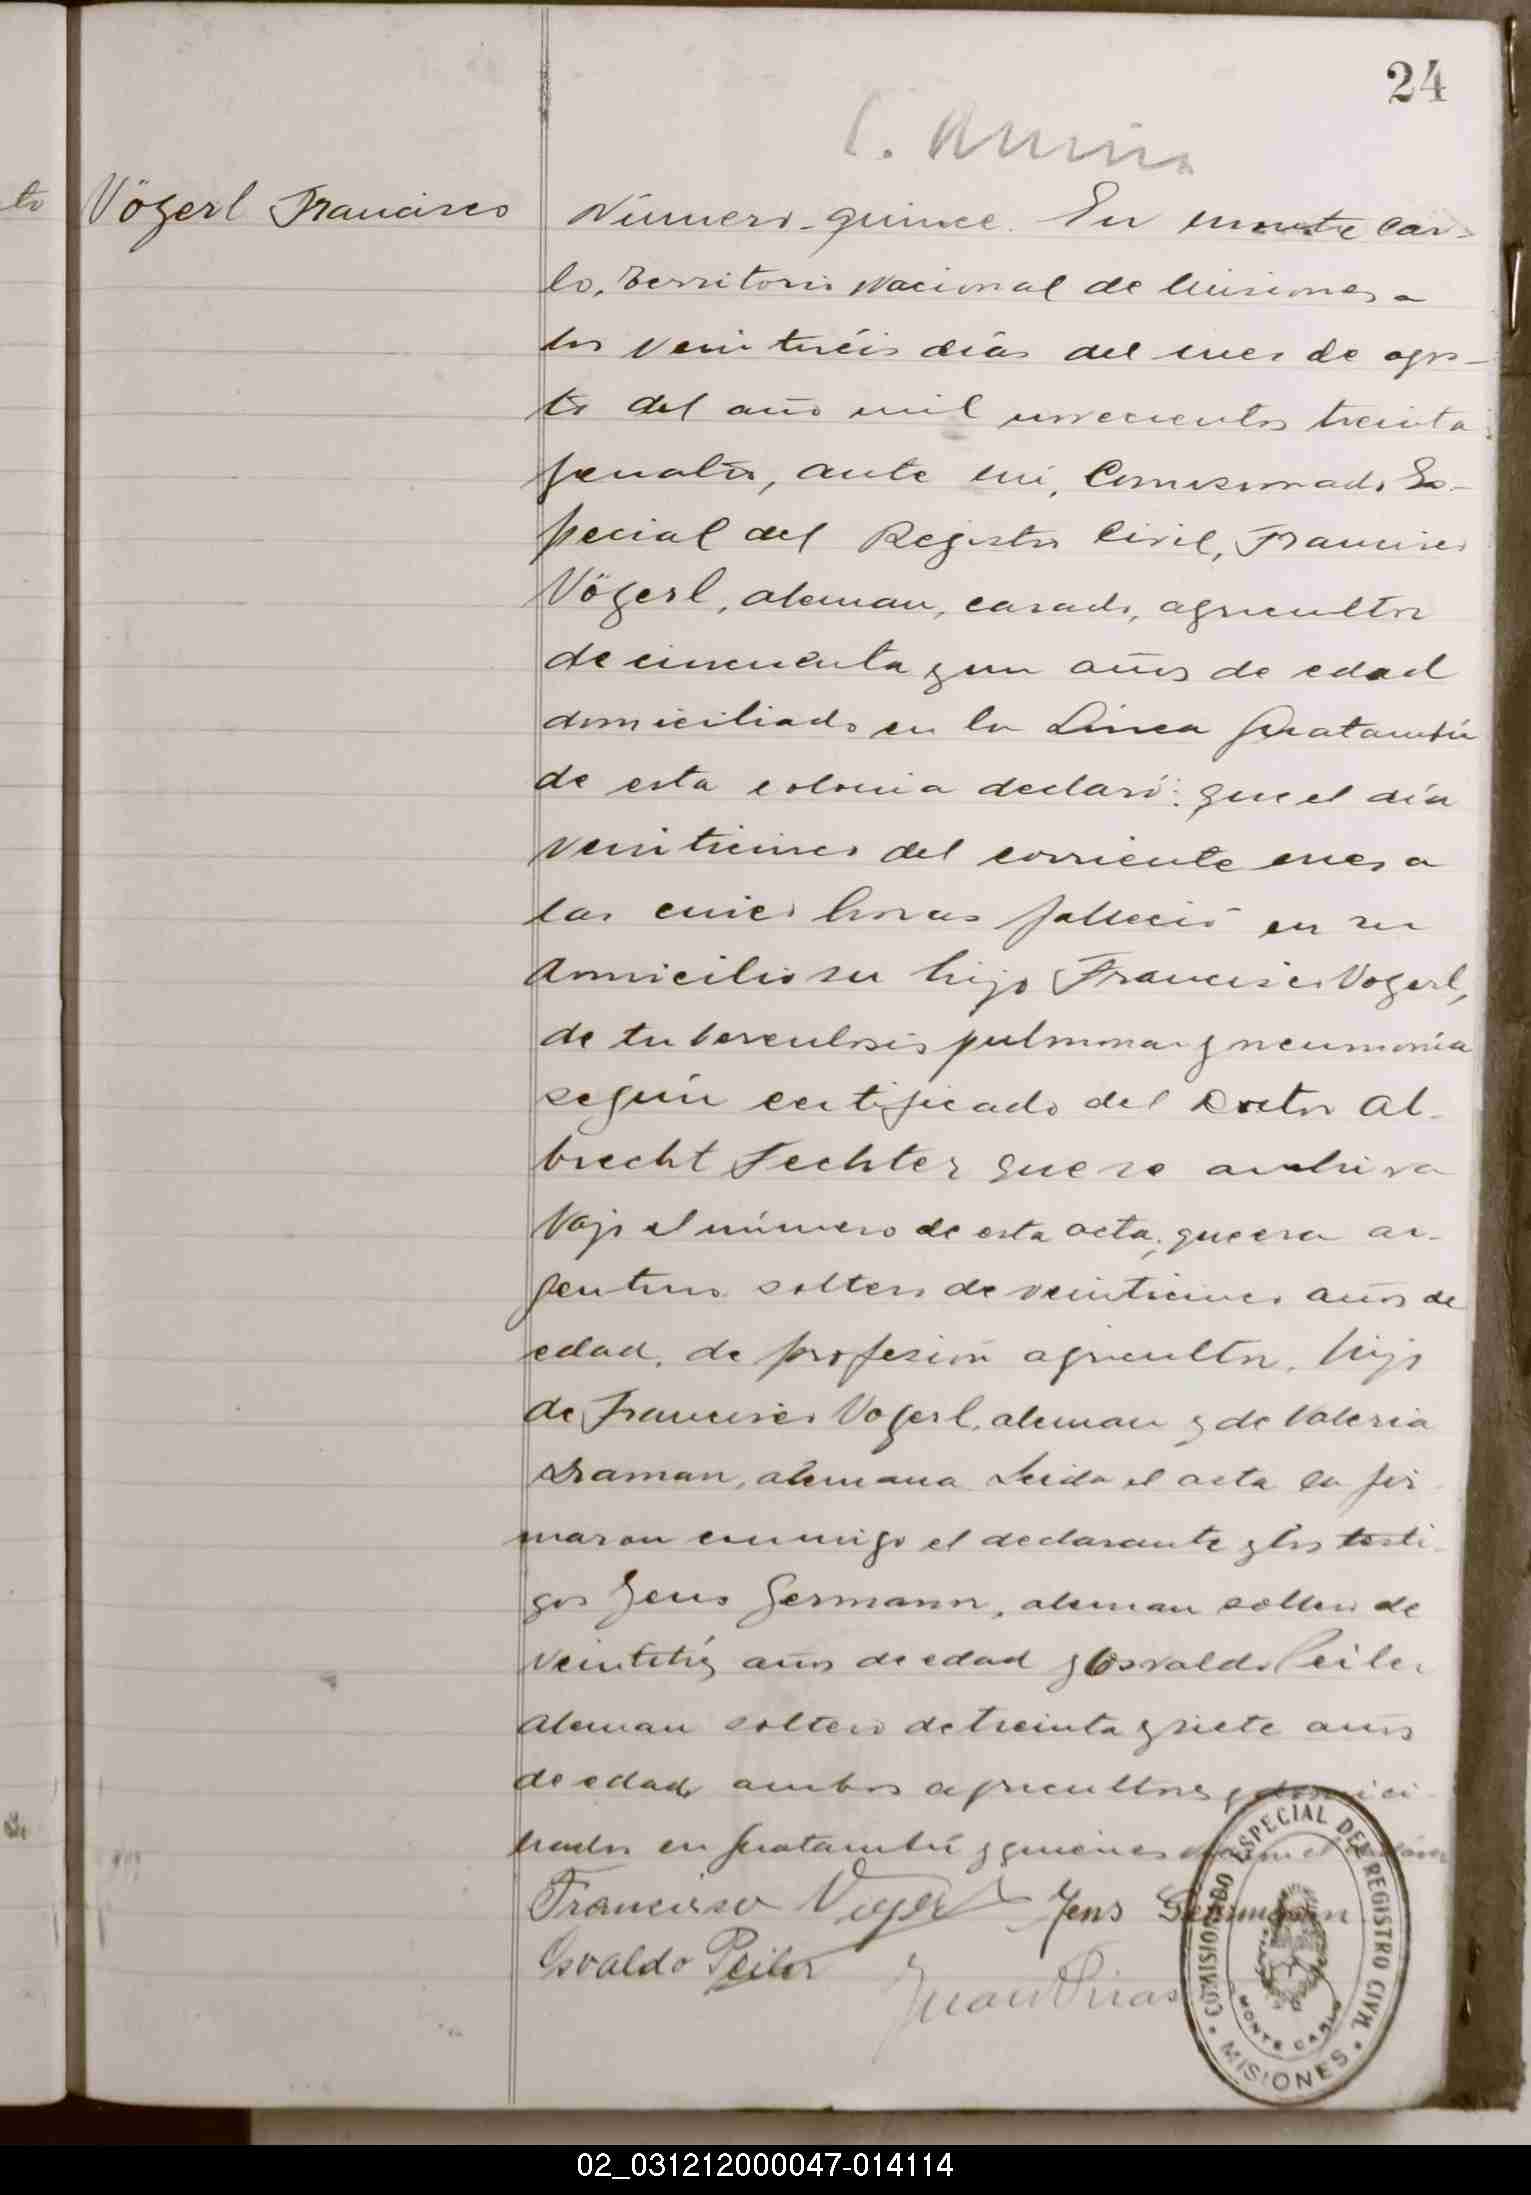 24
Vögerl Francisco
Número quince. En monte Car-
lo, Territorio Nacional de Misiones a
los veintiséis días del mes de agos-
to del año mil novecientos treinta
y cuatro, ante mi, Comisionado Es-
pecial del Registro Civil, Francisco
Vögerl, aleman, casado, agricultor
de cincuenta y un años de edad
domiciliado en la Línea Guatambú
de esta colonia declaró: que el día
veinticinco del corriente mes a
las cinco horas falleció en su
domicilio su hijo Francisco Vogerl,
de tuberculosis pulmonar y neumonía
según certificado del Doctor Al-
brecht Fechter que se archiva
bajo el número de esta acta; que era ar-
gentino soltero de veinticinco años de
edad, de profesión agricultor, hijo
de Francisco Vogerl, aleman y de Valeria
alemana Leida el acta la fir-
maron conmigo el declarante y los testi-
gos Jens Germann, aleman soltero de
años de edad y Osvaldo Peiler
aleman soltero de treinta y siete años
de edad ambos agricultores y domici-
liados en Guatambú y quienes
Francisco Vogerl Jens Germann
Osvaldo Peiler
COMISIONADO ESPECIAL DEL REGISTRO CIVIL
MONTE CARLO
MISIONES
02_031212000047-014114